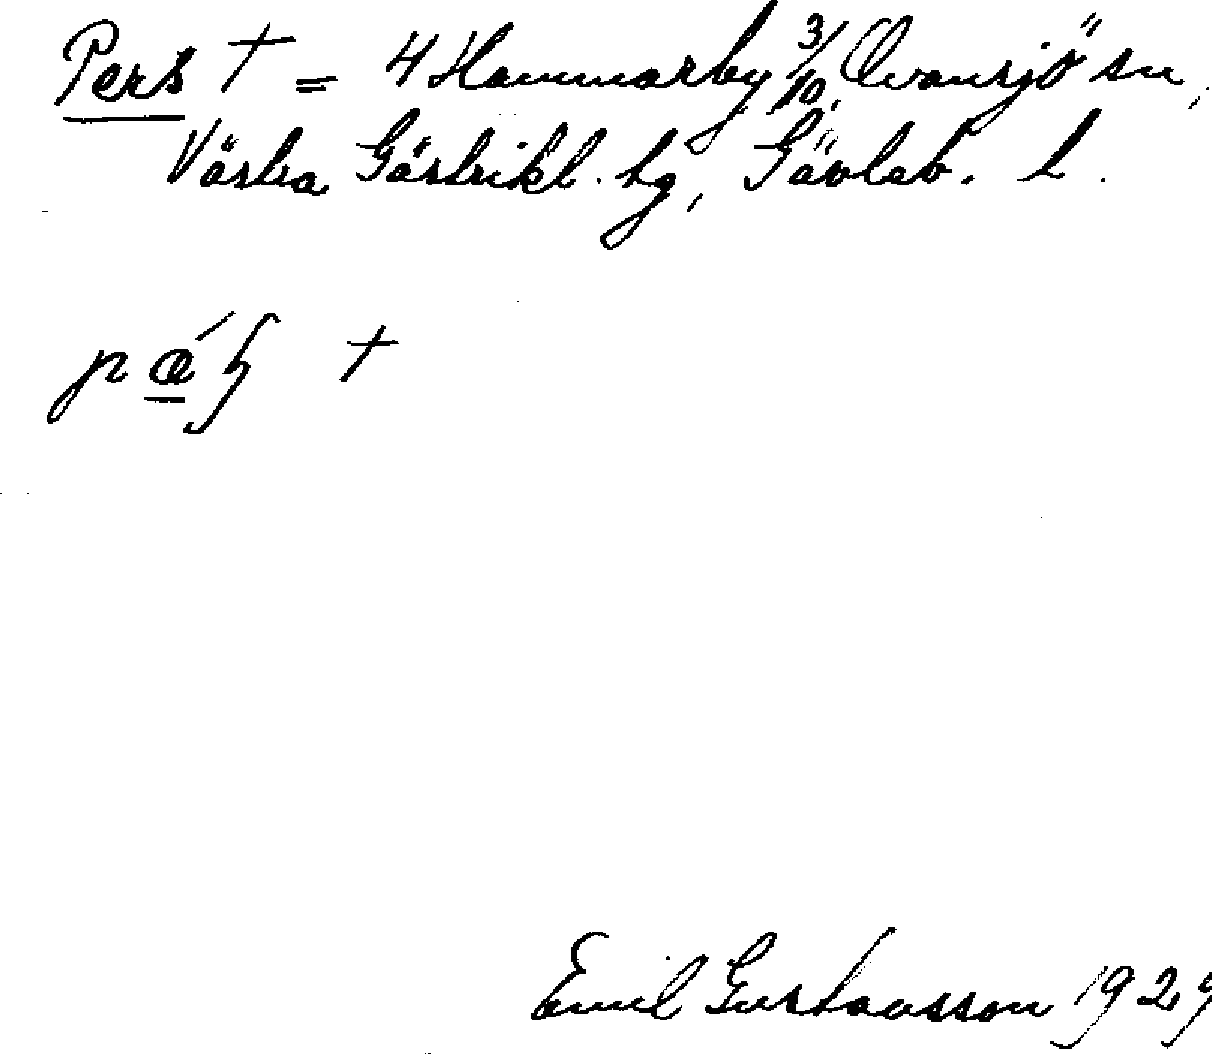 Pers † = 4 Hammarby 3/10, Ovansjö sn,
Västra Gästrikl. hg, Gävleb. l.
Emil Gustavsson 1929